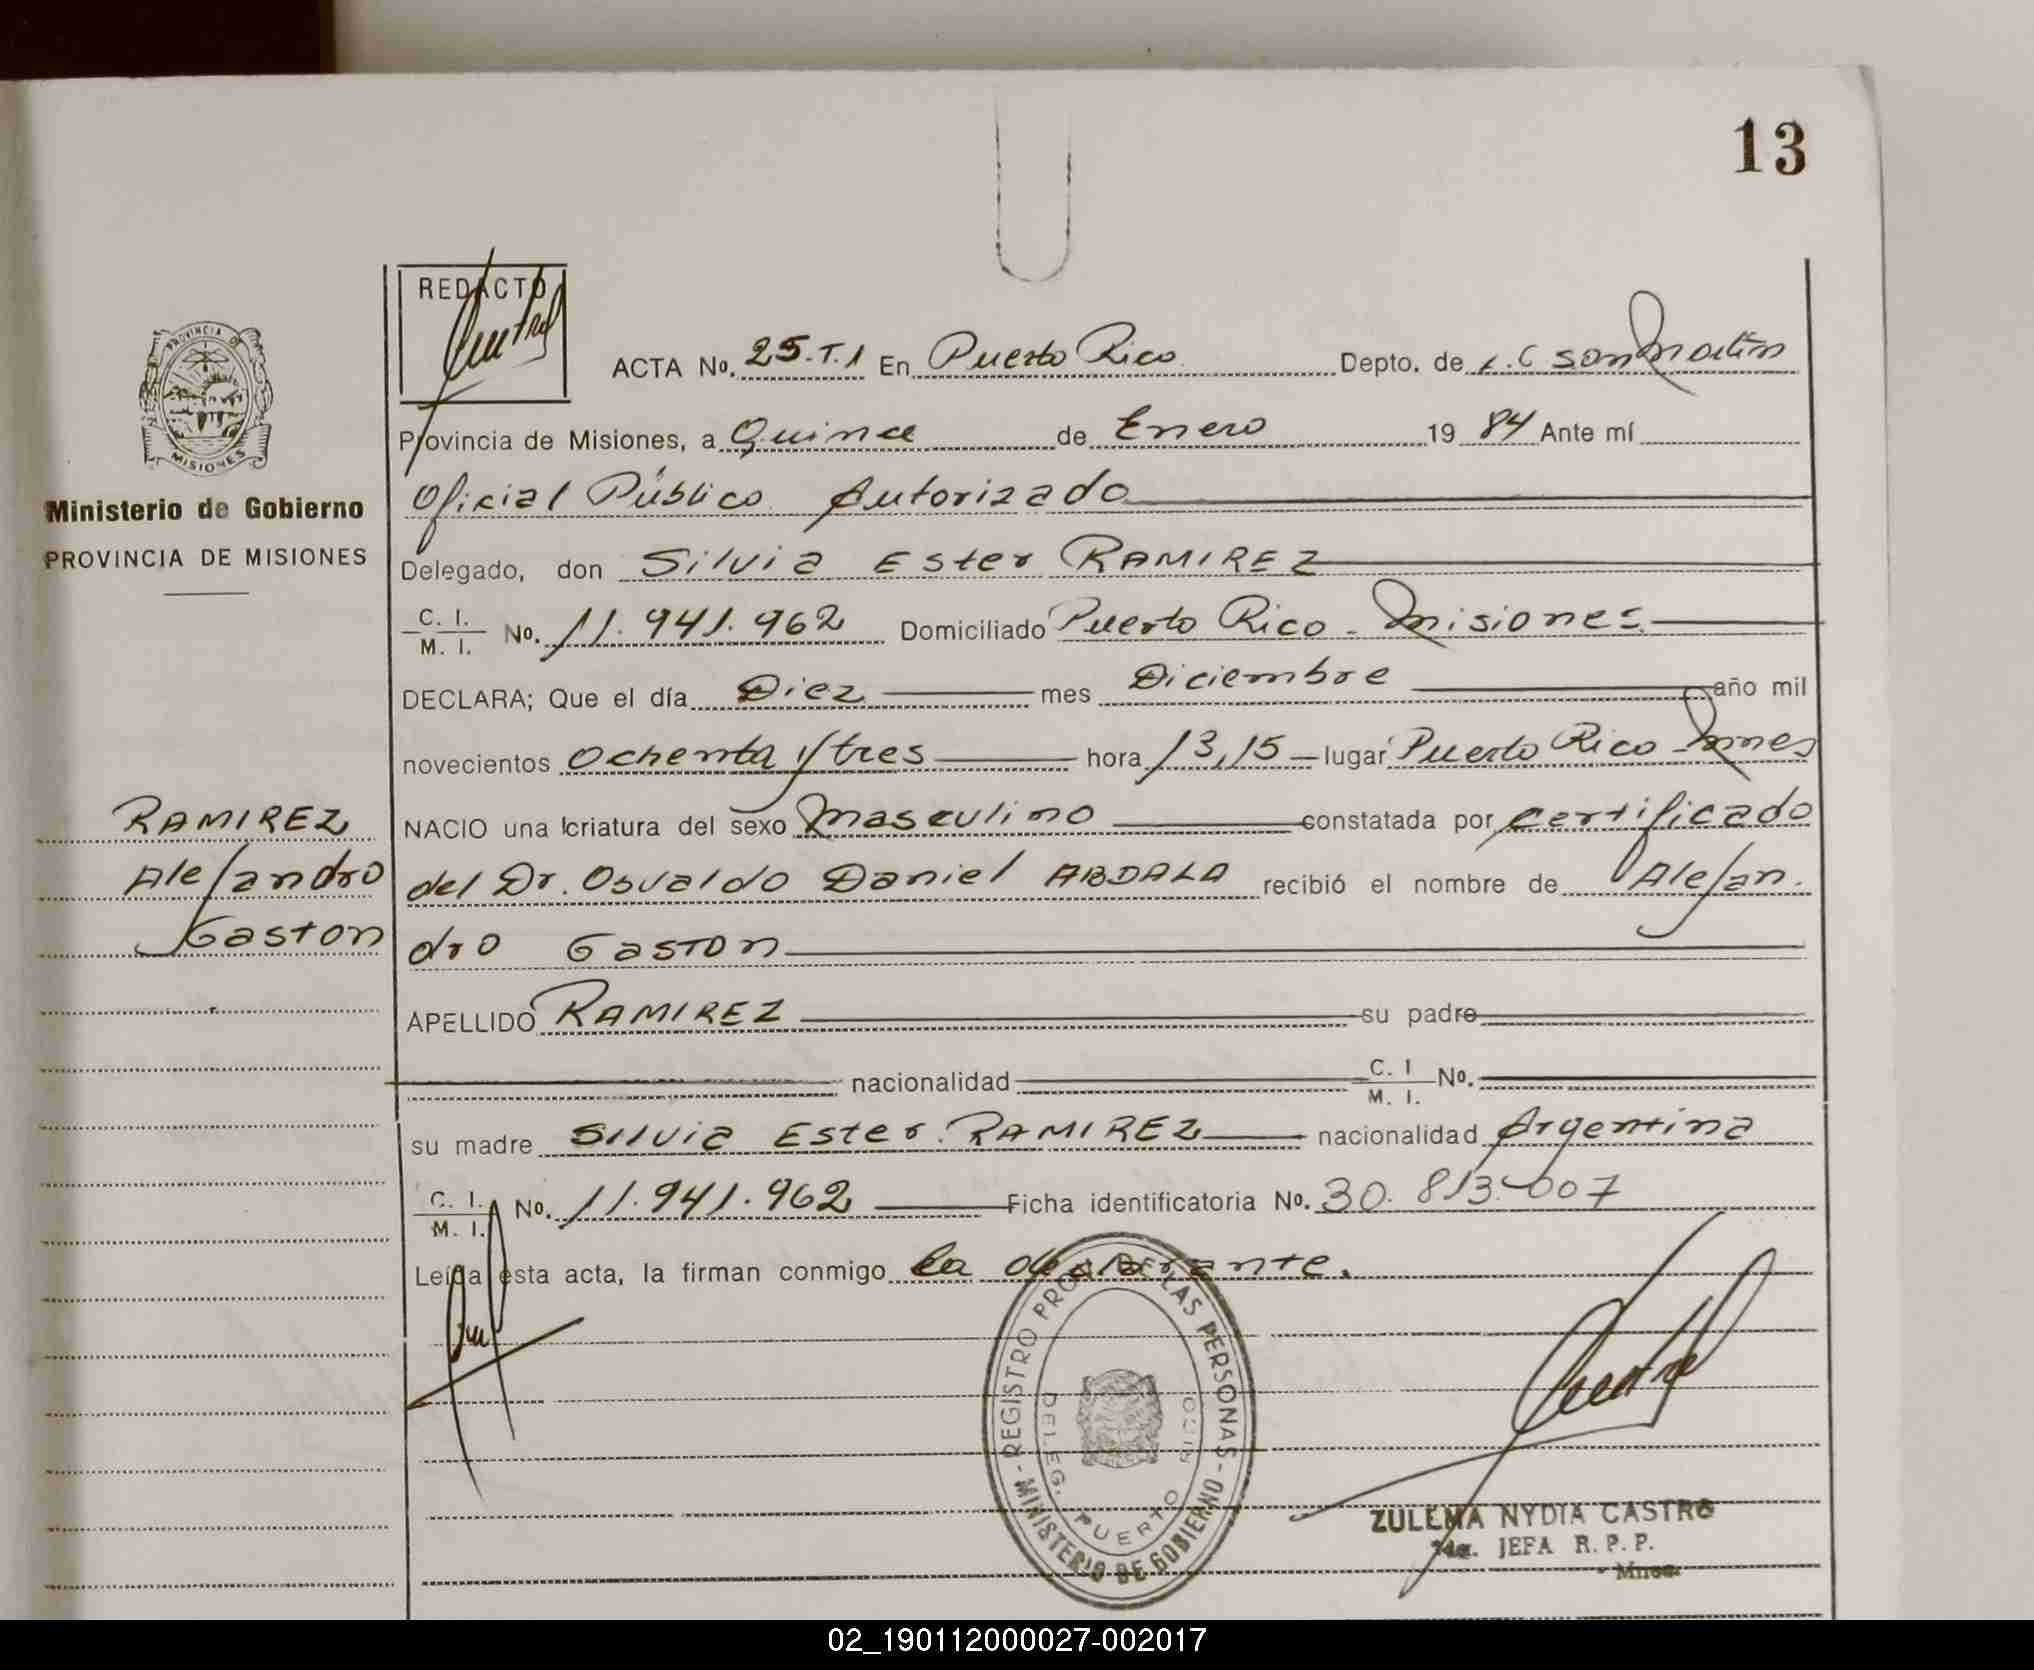 13
REDACTO
ACTA No. 25.T.1 En Puerto Rico Depto. de L.G San Martín
Provincia de Misiones, a Quince de Enero 19 84 Ante mí
Oficial Público Autorizado
Delegado, don Silvia Ester RAMIREZ
C. I. M. I. No. 11.941.962 Domiciliado Puerto Rico - Misiones
DECLARA; Que el día Diez mes Diciembre año mil
novecientos Ochenta y tres hora 13,15 lugar Puerto Rico - Mnes
NACIO una criatura del sexo Masculino constatada por certificado
del Dr. Osvaldo Daniel ABDALA recibió el nombre de Alejan.
dro Gaston
APELLIDO RAMIREZ su padre
nacionalidad C. I M. I. No.
su madre Silvia Ester RAMIREZ nacionalidad Argentina
C. I. M. I. No. 11.941.962 Ficha identificatoria No. 30.813.007
Leída esta acta, la firman conmigo la declarante.
PROVINCIA DE
MISIONES
Ministerio de Gobierno
PROVINCIA DE MISIONES
RAMIREZ
Alejandro
Gaston
REGISTRO PROV. DE LAS PERSONAS
MINISTERIO DE GOBIERNO
DELEG. PUERTO RICO
ZULEMA NYDIA CASTRO
JEFA R. P. P.
Mnes.
02_190112000027-002017